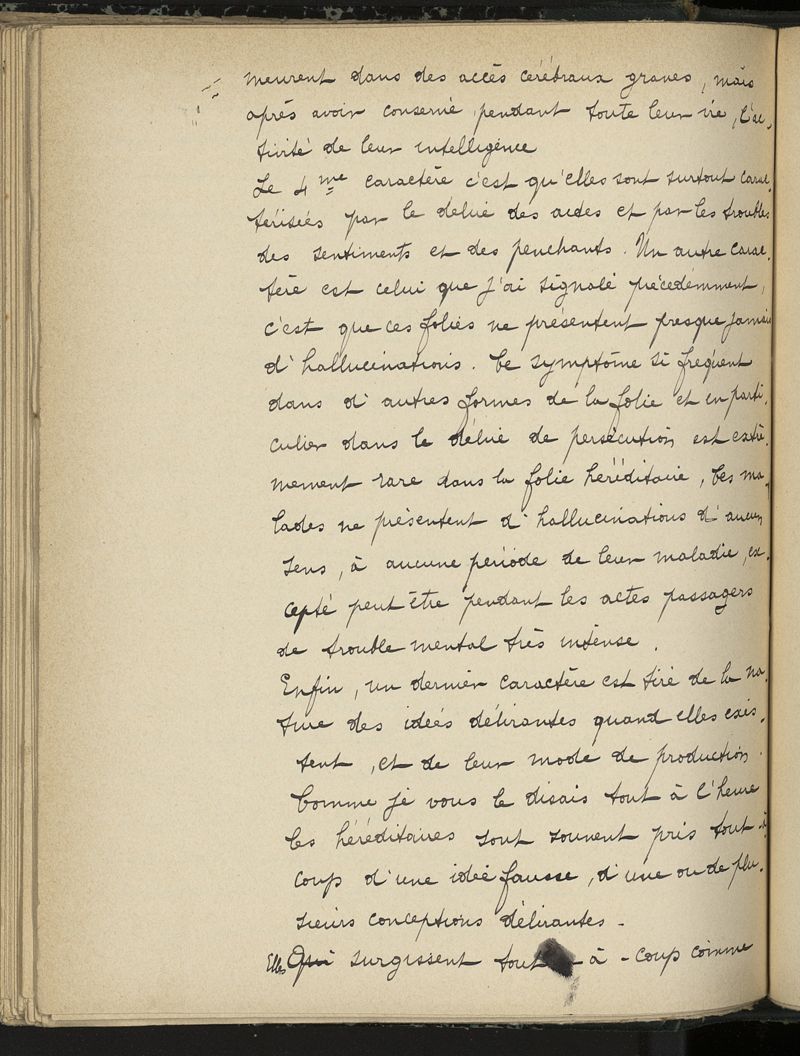 meurent dans des accès cérébraux graves, mais
après avoir conservé, pendant toute leur vie, l'ac-
tivité de leur intelligence
Le 4 me caractère c'est qu'elles sont surtout carac-
térisées par le délire des actes et par les troubles
des sentiments et des penchants. Un autre carac-
tère est celui que j'ai signalé précédemment,
c'est que ces folies ne présentent presque jamais
d'hallucinations. Ce symptôme si fréquent
dans d'autres formes de la folie et en parti-
culier dans le délire de persécution est extrê-
mement rare dans la folie héréditaire, Ces ma-
lades ne présentent d'hallucinations d'aucun
sens, à aucune période de leur maladie, ex-
cepté peut être pendant les actes passagers
de trouble mental très intense.
Enfin, un dernier caractère est tiré de la na-
ture des idées délirantes quand elles exis-
tent, et de leur mode de production.
Comme je vous le disais tout à l'heure
les héréditaires sont souvent pris tout à
coup d'une idée fausse, d'une ou de plu-
sieurs conceptions délirantes -
Elles Qui surgissent tout - à - coup comme